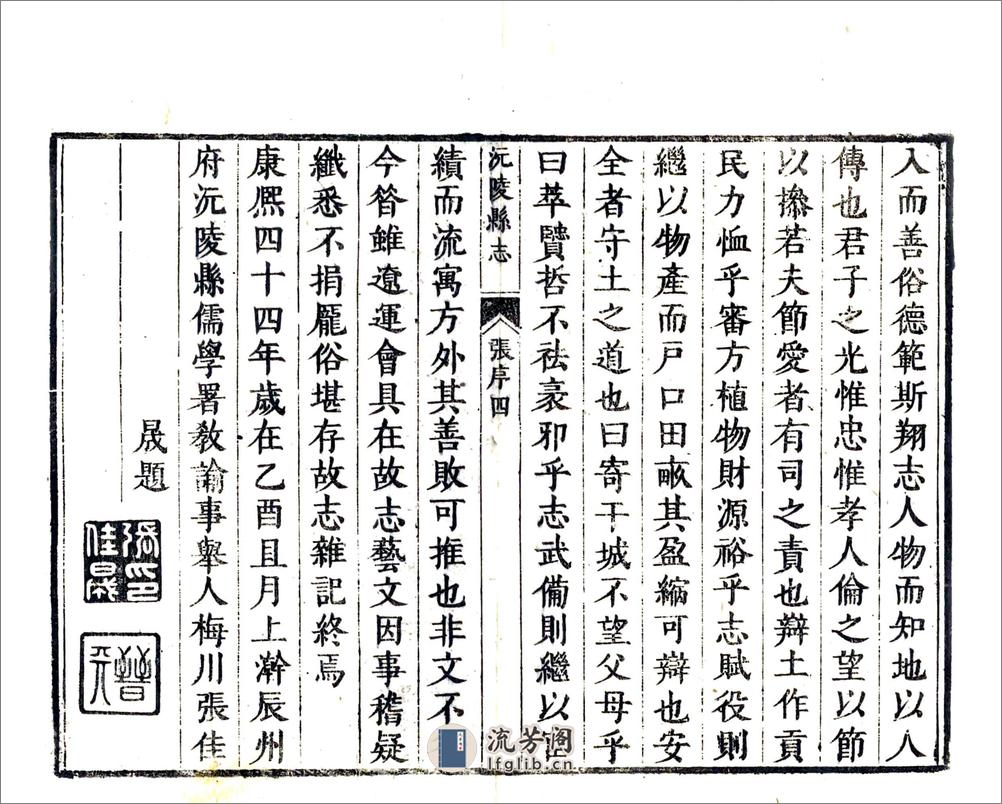 入而善俗德範斯翔志人物而知地以人
傳也君子之光惟忠惟孝人倫之望以節
以摻若夫節愛者有司之責也辯土作貢
民力恤乎審方植物財源裕乎志賦役則
繼以物產而戶口田畝其盈縮可辯也安
全者守土之道也曰寄干城不望父母乎
曰萃賢哲不祛衺邪乎志武備則繼以
沅陵縣志
張序四
績而流寓方外其善敗可推也非文不
今昝雖遼運會具在故志藝文因事稽疑
纖悉不捐厖俗堪存故志雜記終焉
康熈四十四年歲在乙酉且月上澣辰州
府沅陵縣儒學署敎諭事舉人梅川張佳
晟題
張印佳晟
流芳阁
lfglib.cn